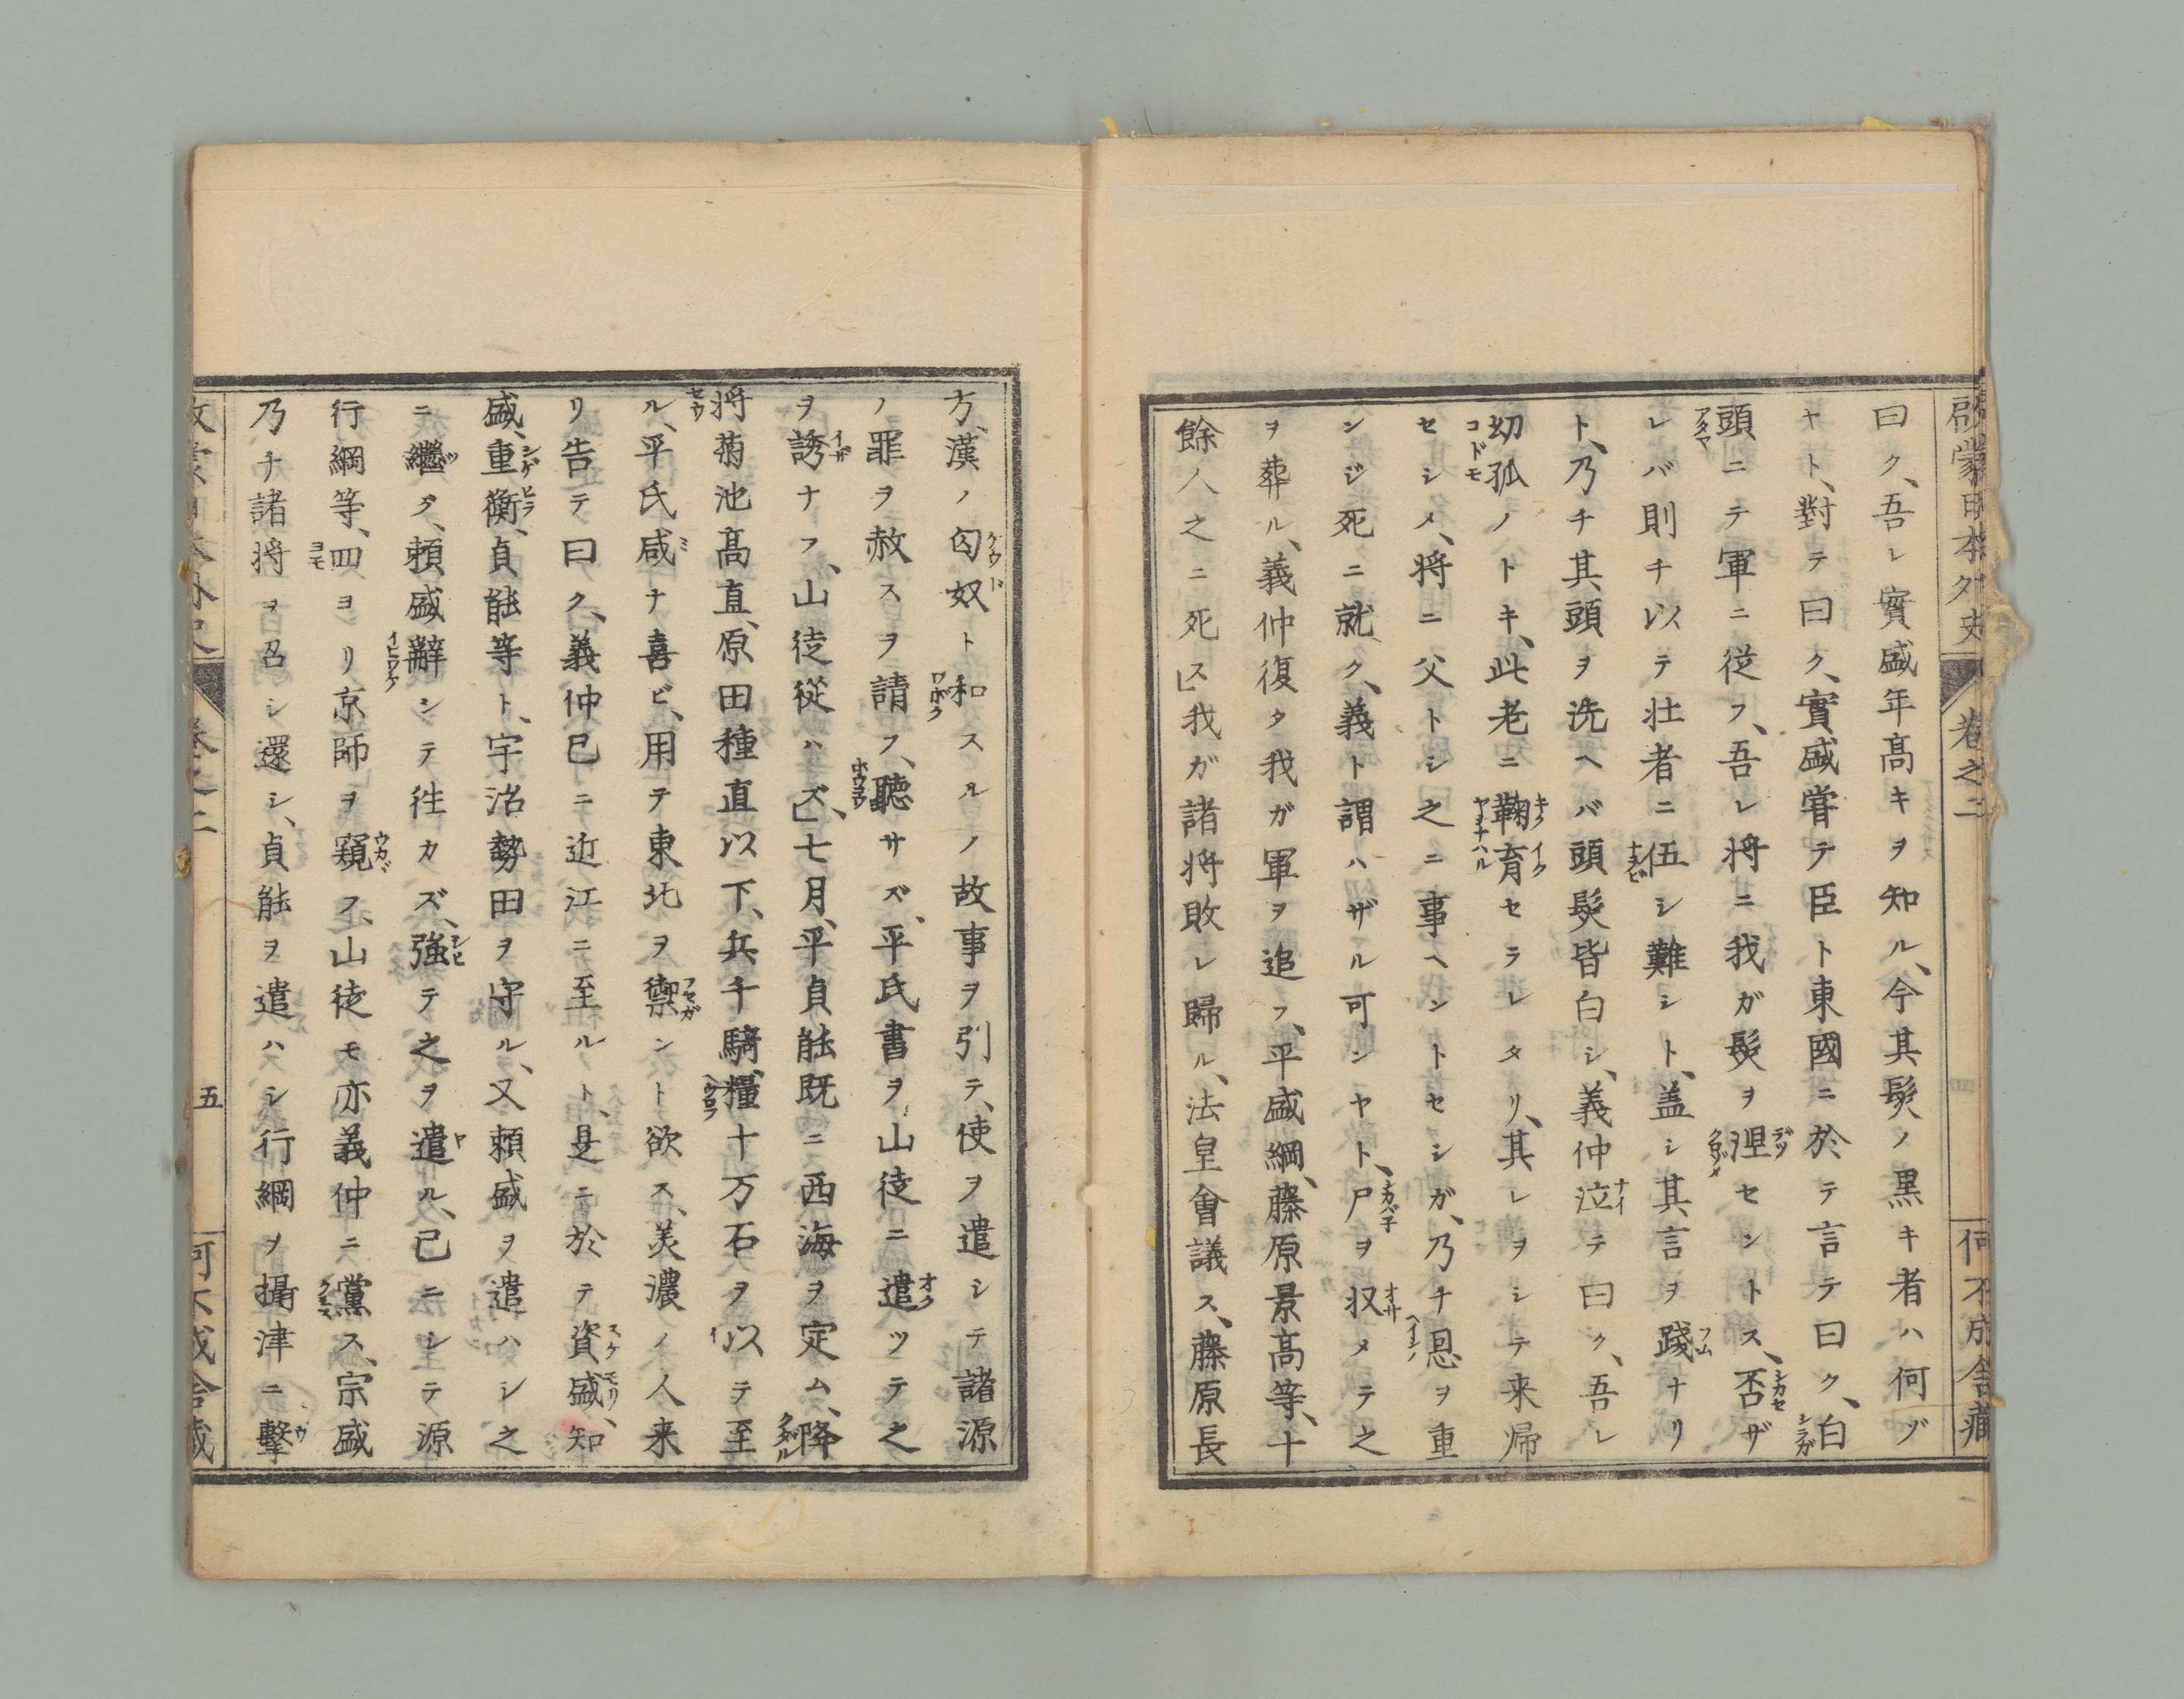 啓蒙日本外史 卷之二 何不成舎藏
曰ク、吾レ實盛年高キヲ知ル、今其髮ノ黒キ者ハ何ヅ
ヤト、對テ曰ク、實盛嘗テ臣ト東國ニ於テ言テ曰ク、白
頭ニテ軍ニ従フ、吾レ将ニ我ガ髮ヲ涅セントス、否ザ
レバ則チ以テ壮者ニ伍シ難シト、盖シ其言ヲ踐ナリ
ト、乃チ其頭ヲ洗ヘバ頭髮皆白シ、義仲泣テ曰ク、吾レ
幼孤ノトキ、此老ニ鞠育セラレタリ、其レヲシテ来帰
セシメ、将ニ父トシ之ニ事ヘントセシガ、乃チ恩ヲ重
ンジ死ニ就ク、義ト謂ハザル可ンヤト、尸ヲ収メテ之
ヲ葬ル、義仲復タ我ガ軍ヲ追フ、平盛綱、藤原景高等、十
餘人之ニ死ス」我ガ諸将敗レ歸ル、法皇會議ス、藤原長
方、漢ノ匈奴ト和スルノ故事ヲ引テ、使ヲ遣シテ諸源
ノ罪ヲ赦スヲ請フ、聴サズ、平氏書ヲ山徒ニ遣ツテ之
ヲ誘ナフ、山徒從ハズ」七月、平貞能既ニ西海ヲ定ム、降
将菊池高直、原田種直以下、兵千騎、糧十万石ヲ以テ至
ル、平氏咸ナ喜ビ、用テ東北ヲ禦ント欲ス、美濃ノ人来
リ告テ曰ク、義仲已ニ近江ニ至ルト、是ニ於テ資盛、知
盛、重衡、貞能等ト、宇治勢田ヲ守ル、又頼盛ヲ遣ハシ之
ニ繼ク、頼盛辭シテ徃カズ、強テ之ヲ遣ル、已ニシテ源
行綱等、四ヨリ京師ヲ窺フ、山徒モ亦義仲ニ黨ス、宗盛
乃チ諸将ヲ召シ還シ、貞能ヲ遣ハシ行綱ヲ攝津ニ擊
五